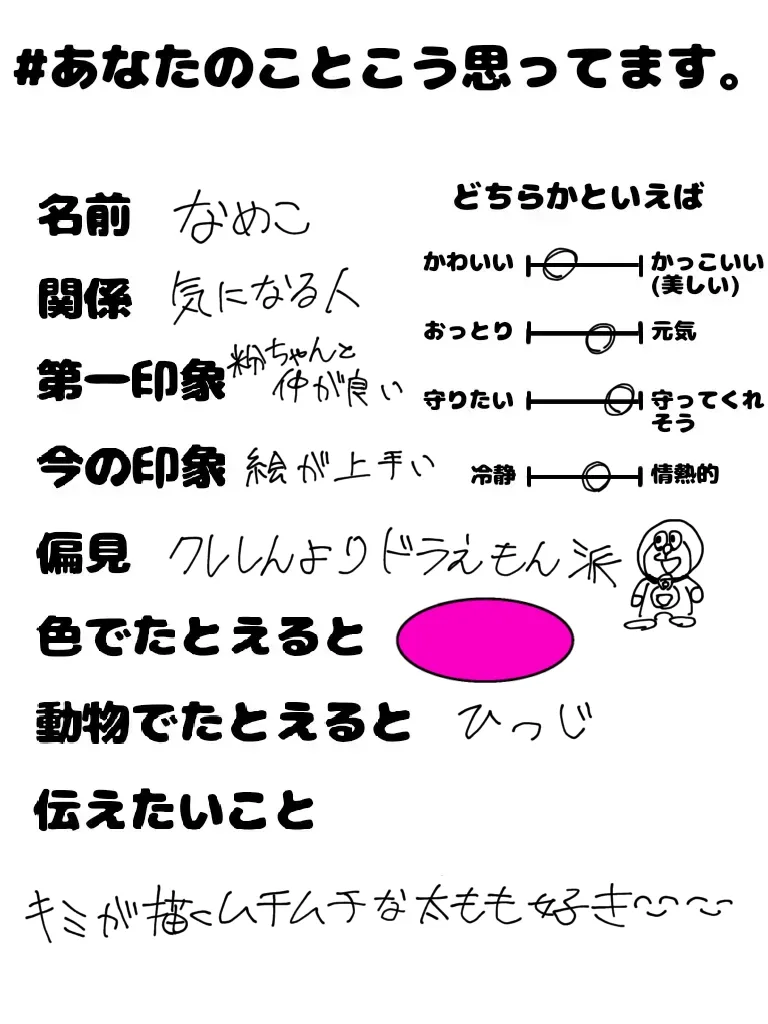 #あなたのことこう思ってます。
名前 なめこ
関係 気になる人
第一印象 粉ちゃんと
仲が良い
今の印象 絵が上手い
どちらかといえば
かわいい かっこいい
(美しい)
おっとり 元気
守りたい 守ってくれ
そう
冷静 情熱的
偏見 クレしんよりドラえもん派
色でたとえると
動物でたとえると ひつじ
伝えたいこと
キミが描くムチムチな太もも好き〜〜